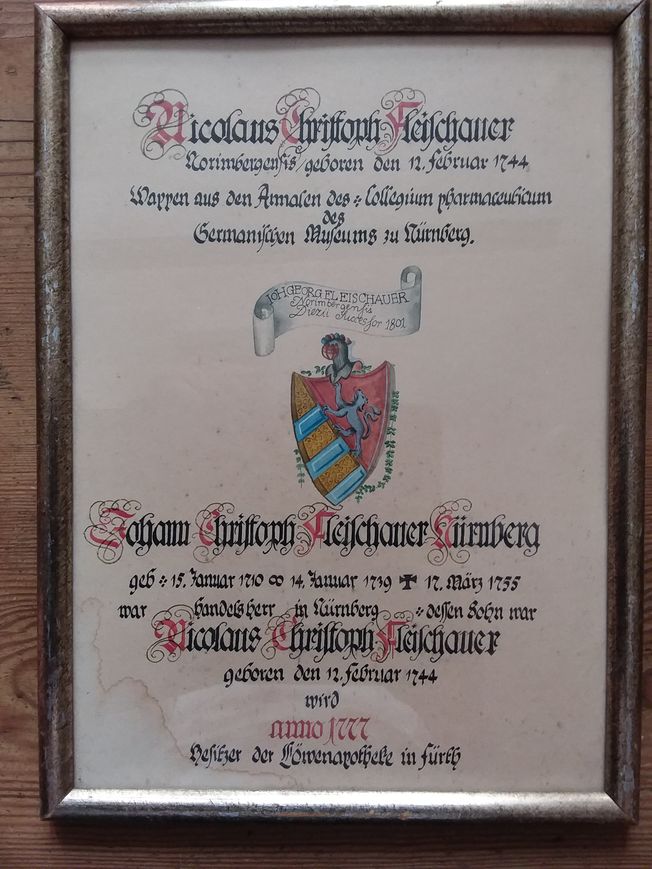 Nicolaus Christoph Fleischauer
Norimbergensis geboren den 12. Februar 1744
Wappen aus den Annalen des : Collegium pharmaceuticum
des
Germanischen Museums zu Nürnberg.
IOHGEORG FLEISCHAUER
Norimbergensis
Diezii Successor 1801
Johann Christoph Fleischauer Nürnberg
geb : 15. Januar 1710 ∞ 14. Januar 1739 ✝ 17. März 1755
war Handelsherr in Nürnberg : dessen Sohn war
Nicolaus Christoph Fleischauer
geboren den 12. Februar 1744
wird
anno 1777
Besitzer der Löwenapotheke in Fürth